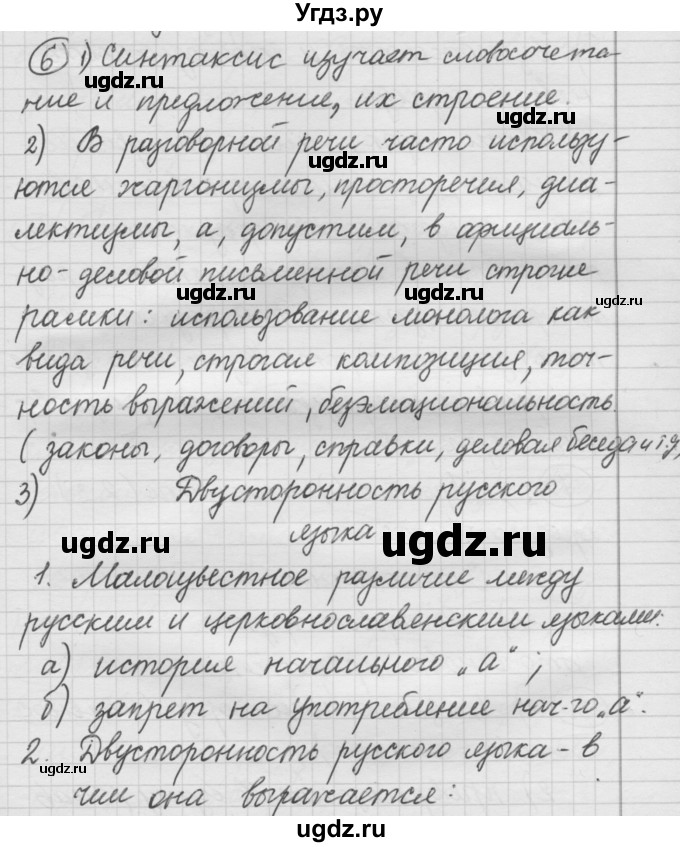 Угдз.ру
⑥ 1) Синтаксис изучает словосочета-
ugdz.ru ugdz.ru
ние и предложение, их строение.
ugdz.ru
2) В разговорной речи часто использу-
ugdz.ru
ются жаргонизмы, просторечия, диа-
лектизмы, а, допустим, в официаль-
но-деловой письменной речи строгие
ugdz.ru ugdz.ru ugdz.ru
рамки: использование монолога как
вида речи, строгая композиция, точ-
ность выражений, безэмоциональность
(законы, договоры, справки, деловая беседа и т.д)
3) Двусторонность русского
языка
ugdz.ru ugdz.ru
1. Малоизвестное различие между
русским и церковнославенским языками:
а) история начального „а“;
б) запрет на употребление нач-го „а“.
2. Двусторонность русского языка - в
ugdz.ru ugdz.ru ugdz.ru
чем она выражается:
ugdz.ru